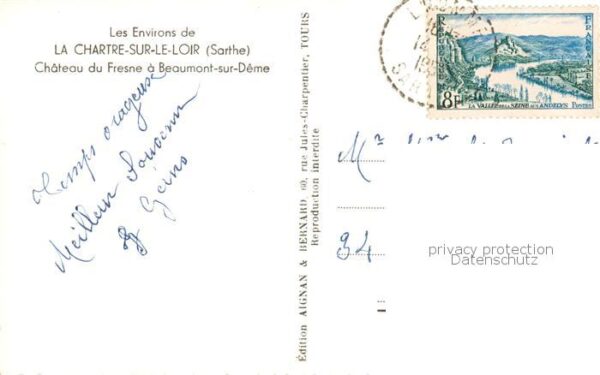 Les Environs de
LA CHARTRE-SUR-LE-LOIR (Sarthe)
Château du Fresne à Beaumont-sur-Dême
Temps orageux
Meilleur Souvenir
Édition AIGNAN & BERNARD, 60, rue Jules-Charpentier, TOURS
Reproduction interdite
REPUBLIQUE
FRANÇAISE
8F
LA VALLÉE DE LA SEINE AUX ANDELYS
POSTES
94
privacy protection
Datenschutz